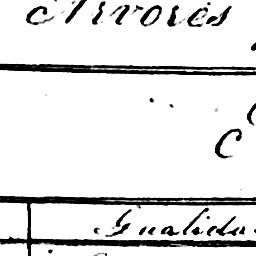 Arvores
C
Gualida